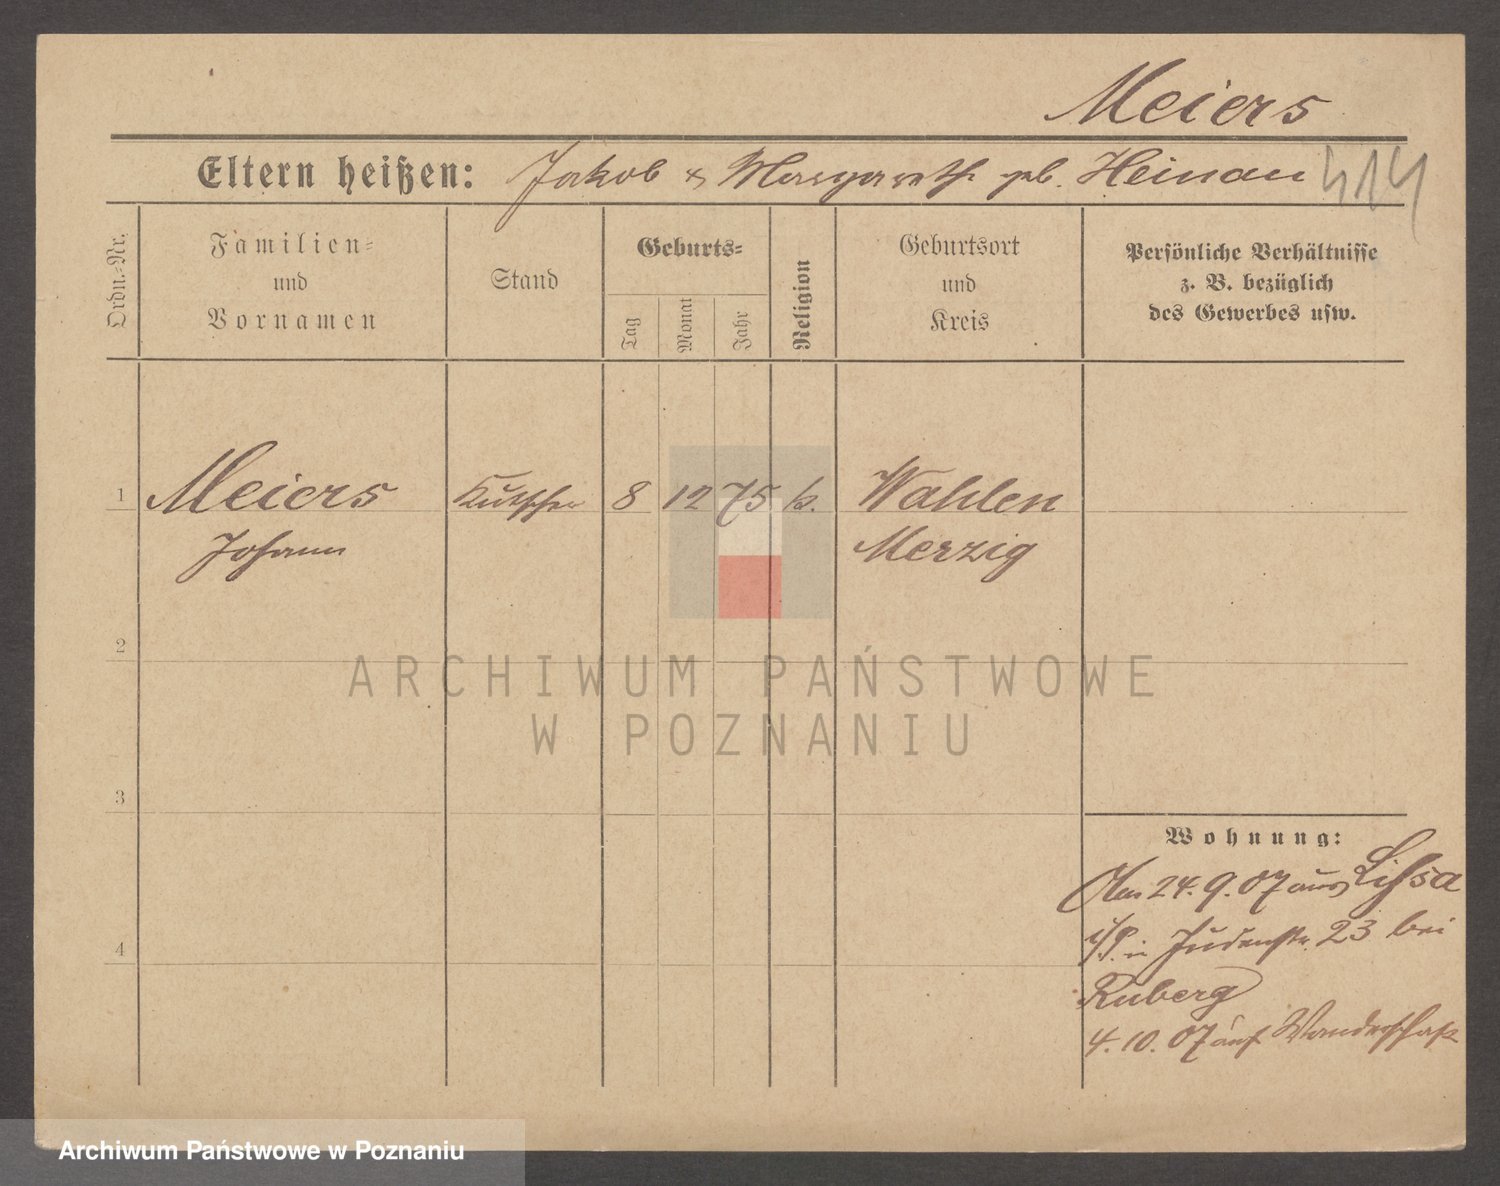 Meiers
Eltern heißen: Jakob & Margareth geb. Heinau 414
Ordn.-Nr.
Familien-
und
Vornamen
Stand
Geburts-
Tag
Monat
Jahr
Religion
Geburtsort
und
Kreis
Persönliche Verhältnisse
z. B. bezüglich
des Gewerbes usw.
1 Meiers Kutscher 8 12 75 k. Wahlen
Johann Merzig
2
ARCHIWUM PAŃSTWOWE
W POZNANIU
3
Wohnung:
Am 24.9.07 aus Lissa
i/P. in Judenstr. 23 bei
4
Ruberg
4.10.07 auf Wanderschaft
Archiwum Państwowe w Poznaniu